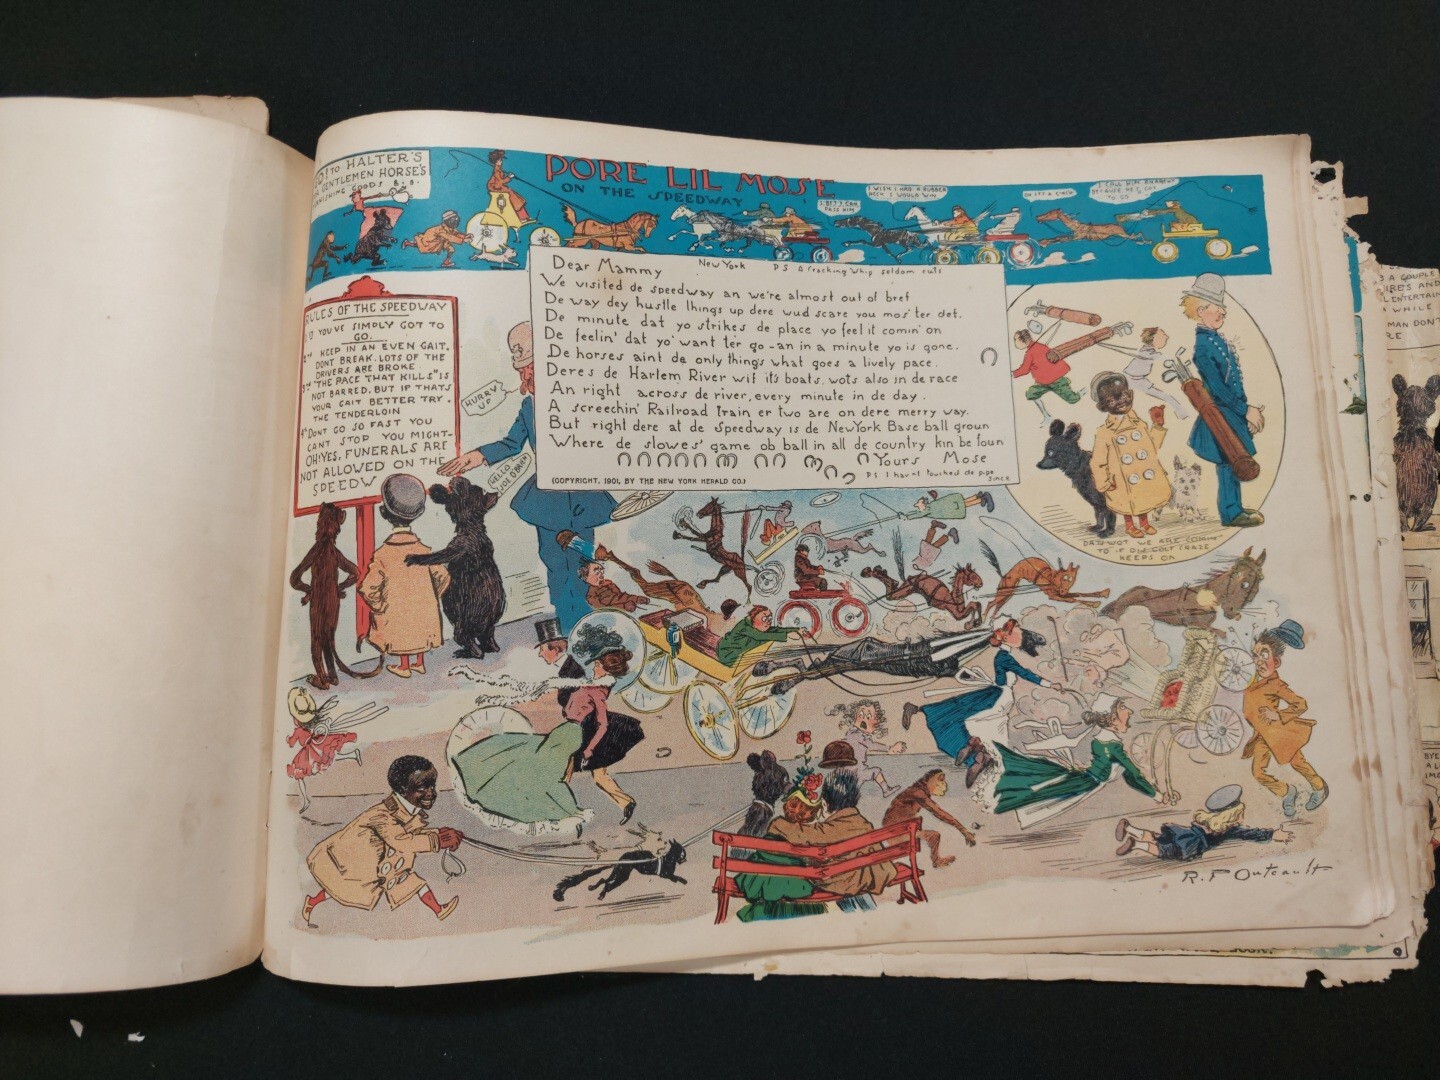 TO HALTER'S
GENTLEMEN HORSE'S
GOODS B. B.
PORE LIL MOSE
ON THE SPEEDWAY
I BET I CAN
PASS HIM
I WISH I HAD A RUBBER
NECK I WOULD WIN
I CALL HIM
BECAUSE HE'S GOT
TO GO
RULES OF THE SPEEDWAY
YOUVE SIMPLY GOT TO
GO.
2nd KEEP IN AN EVEN GAIT.
DONT BREAK. LOTS OF THE
DRIVERS ARE BROKE
3rd "THE PACE THAT KILLS" IS
NOT BARRED. BUT IF THATS
YOUR GAIT BETTER TRY.
THE TENDERLOIN
4th DONT GO SO FAST YOU
CANT STOP YOU MIGHT-
OH! YES, FUNERALS ARE
NOT ALLOWED ON THE
SPEEDW
HURRY
UP
HELLO
JOE O'BRIEN
Dear Mammy New York P S a Cracking Whip seldom cuts
We visited de speedway an we're almost out of bref
De way dey hustle things up dere wud scare you mos' ter det.
De minute dat yo strikes de place yo feel it comin' on
De feelin' dat yo' want ter go - an in a minute yo is gone.
De horses aint de only things what goes a lively pace.
Deres de Harlem River wif it's boats. wots also in de race
An right across de river, every minute in de day.
A screechin' Railroad train er two are on dere merry way.
But right dere at de Speedway is de New York Base ball groun
Where de slowes' game ob ball in all de country kin be foun
Yours Mose
PS I havn't touched de pipe
since
(COPYRIGHT, 1901, BY THE NEW YORK HERALD CO.)
DATS WOT WE ARE COMIN'
TO IF DIS GOLF CRAZE
KEEPS ON
R. F. Outcault
A COUPLE
IRES AND
ENTERTAIN
WHILE
MAN DON'T
BYE
A L